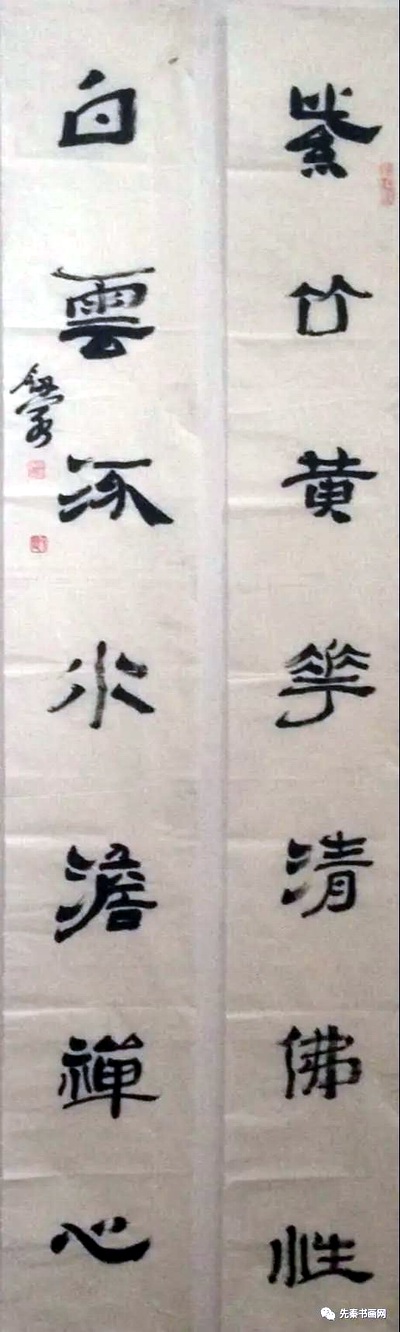 紫竹黄花清佛性
白雲流水澹禪心
先秦书画网